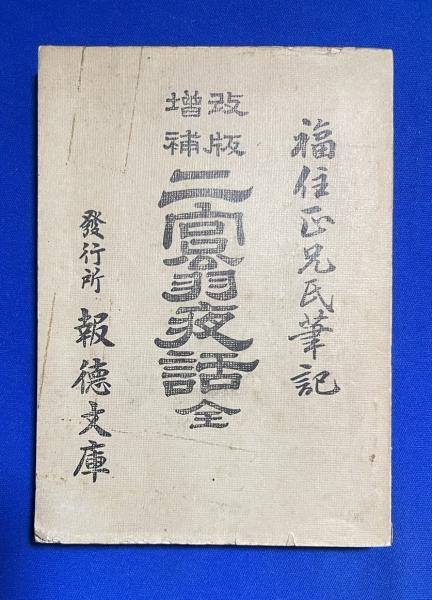 福住正兄氏筆記
改版
増補
二宮翁夜話 全
發行所 報德文庫